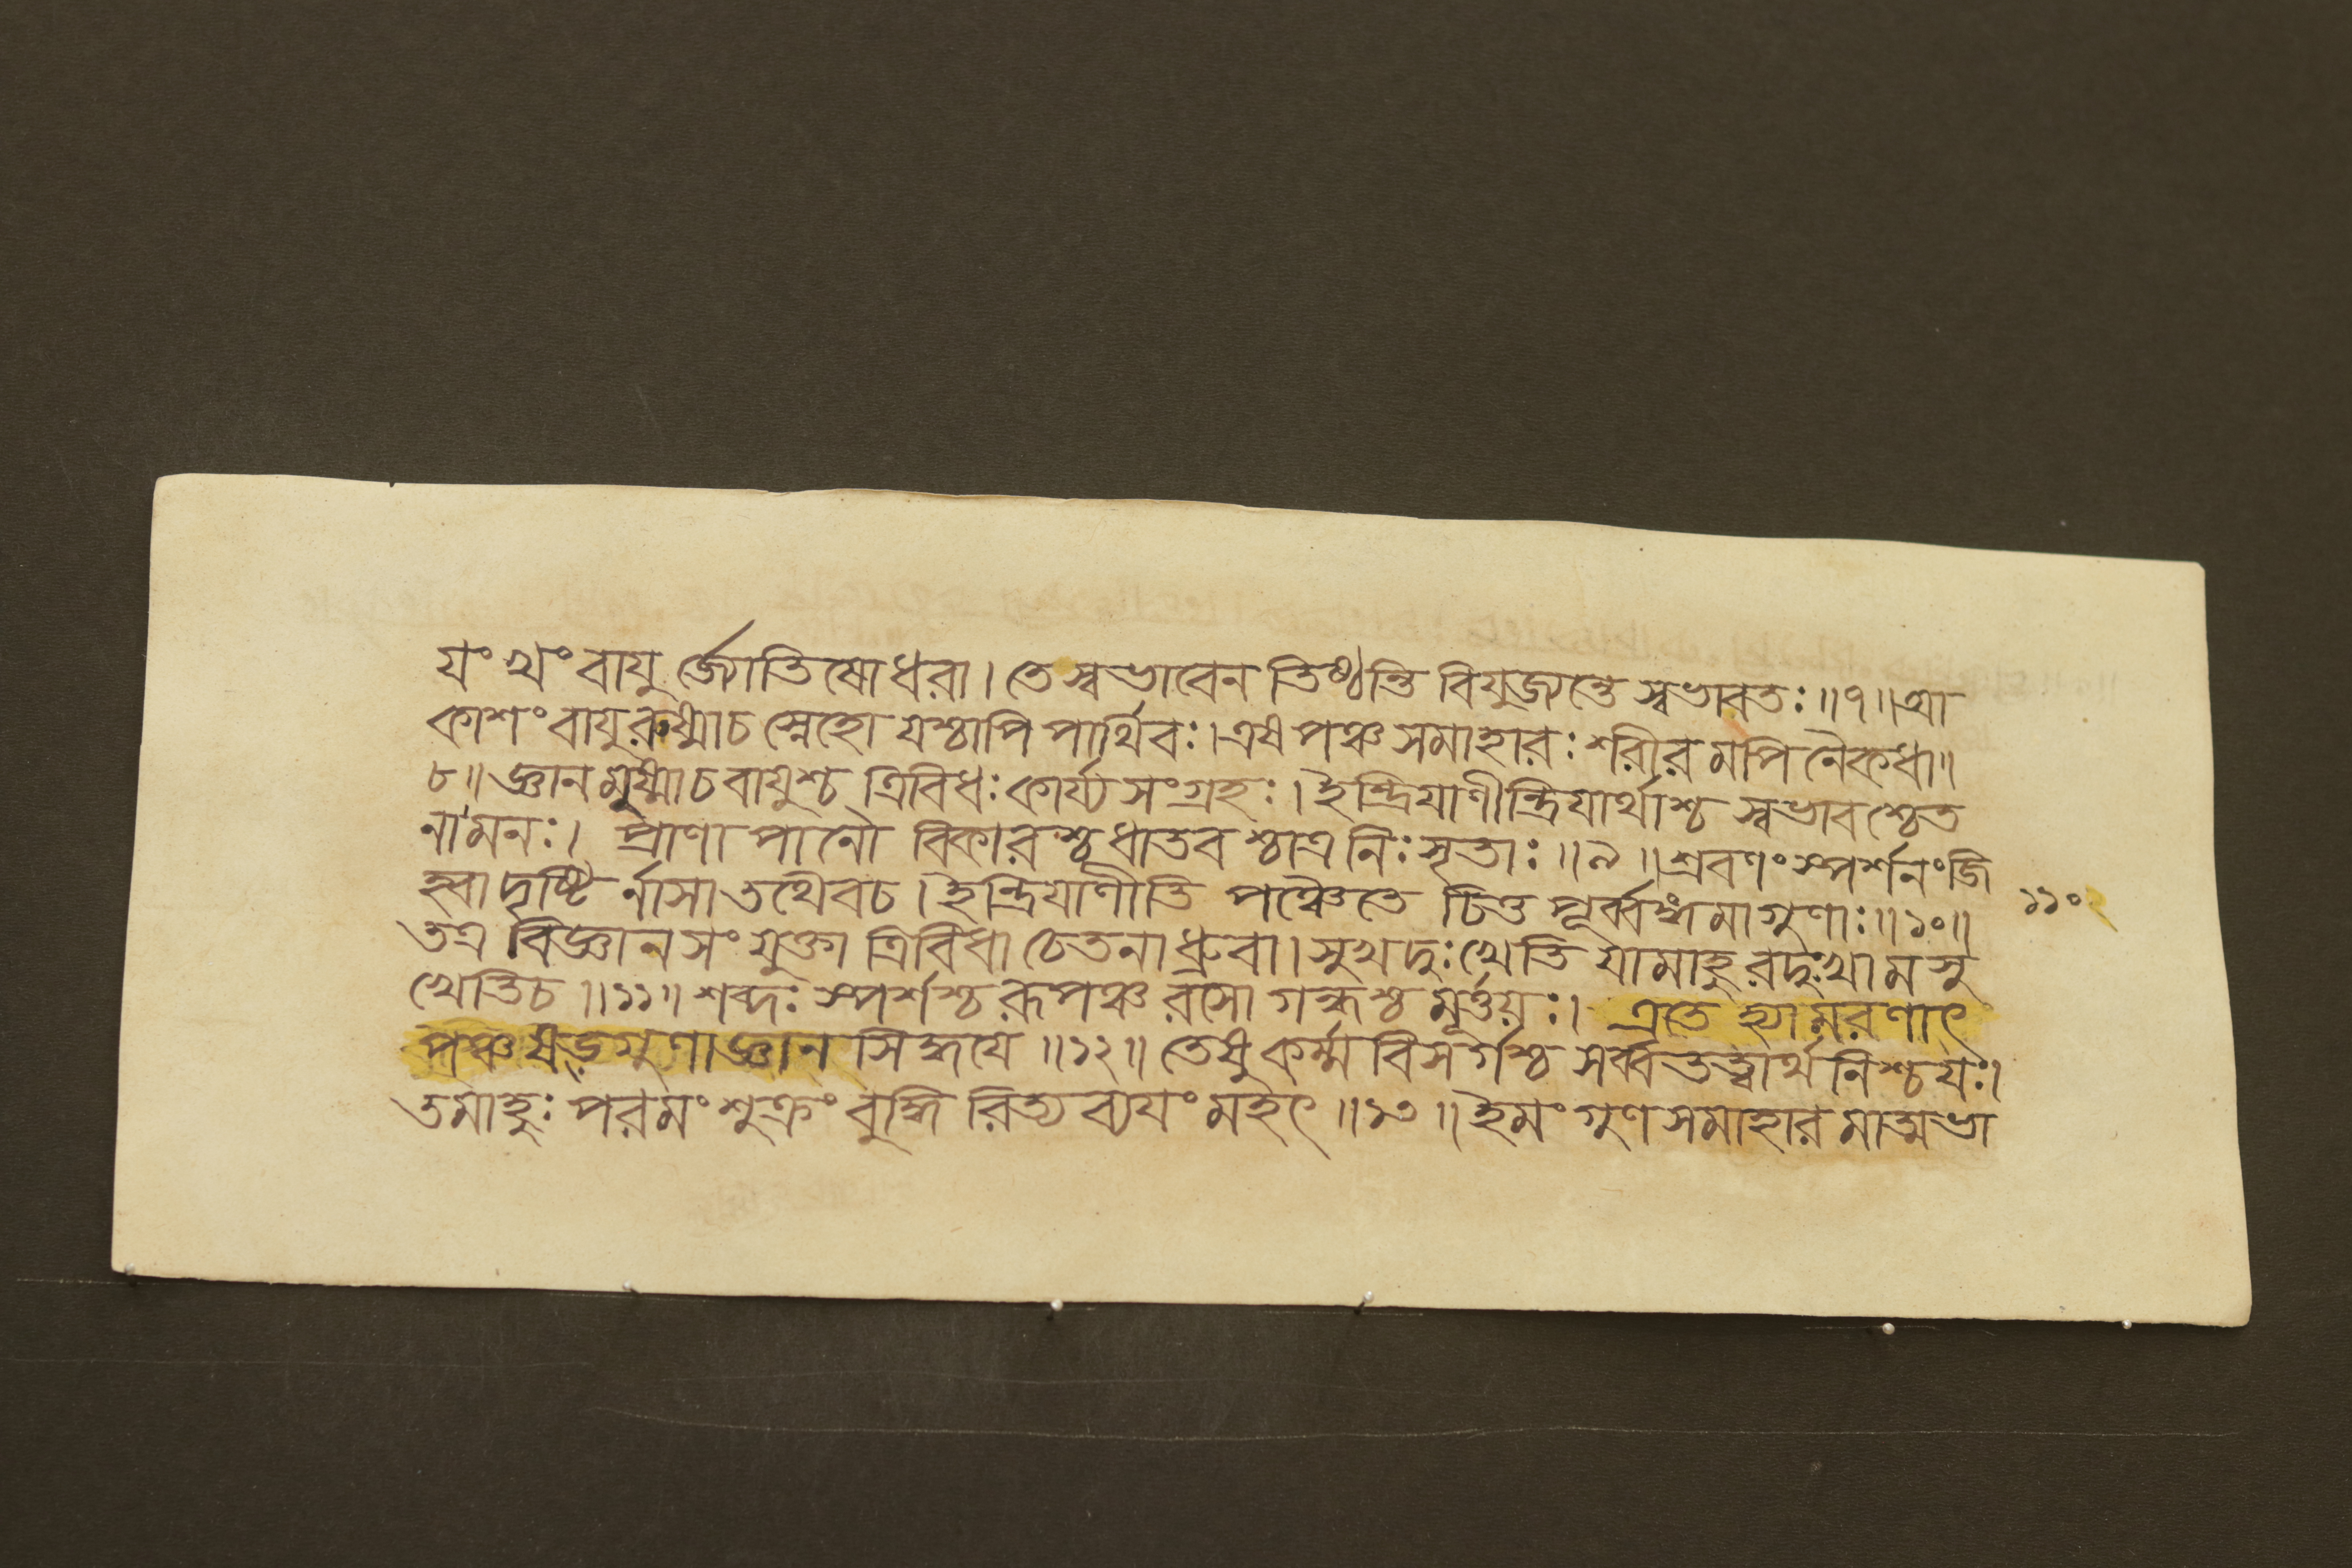 যং খং বাযু র্জ্যোতিষোধরা। তে স্বভাবেন তিষ্ঠন্তি বিযুজ্যন্তে স্বভাবতঃ॥৭॥আ
কাশং বাযুরুষ্মাচ স্নেহো যশ্চাপি পার্থিবঃ।এষ পঞ্চ সমাহারঃ শরীর মপি নৈকধা॥
৮॥ জ্ঞান মুষ্মাচ বাযুশ্চ ত্রিবিধঃ কার্য্য সংগ্রহঃ। ইন্দ্রিযাণীন্দ্রিযার্থাশ্চ স্বভাব শ্চেত
নামনঃ। প্রাণা পানৌ বিকারশ্চ ধাতব শ্চাত্র নিঃসৃতাঃ॥৯॥শ্রবণং স্পর্শনং জি
হ্বা দৃষ্টি র্নাসা তথৈবচ। ইন্দ্রিযাণীতি পঞ্চৈতে চিত্ত পূর্ব্বঙ্গমা গুণাঃ॥১০॥
১১০
তত্র বিজ্ঞান সংযুক্তা ত্রিবিধা চেতনা ধ্রুবা। সুখ দুঃখেতি যামাহু রদুঃখা মসু
খেতিচ॥১১॥ শব্দঃ স্পর্শশ্চ রূপঞ্চ রসো গন্ধশ্চ মূর্ত্তয়ঃ। এতে হ্যামরণাৎ
পঞ্চ ষড়্গুণা জ্ঞান সিদ্ধযে॥১২॥ তেষু কর্ম্ম বিসর্গশ্চ সর্ব্বতত্ত্বার্থ নিশ্চযঃ।
তমাহুঃ পরমং শুক্রং বুদ্ধি রিত্য ব্যযং মহৎ॥১৩॥ ইমং গুণ সমাহার মাত্মভা